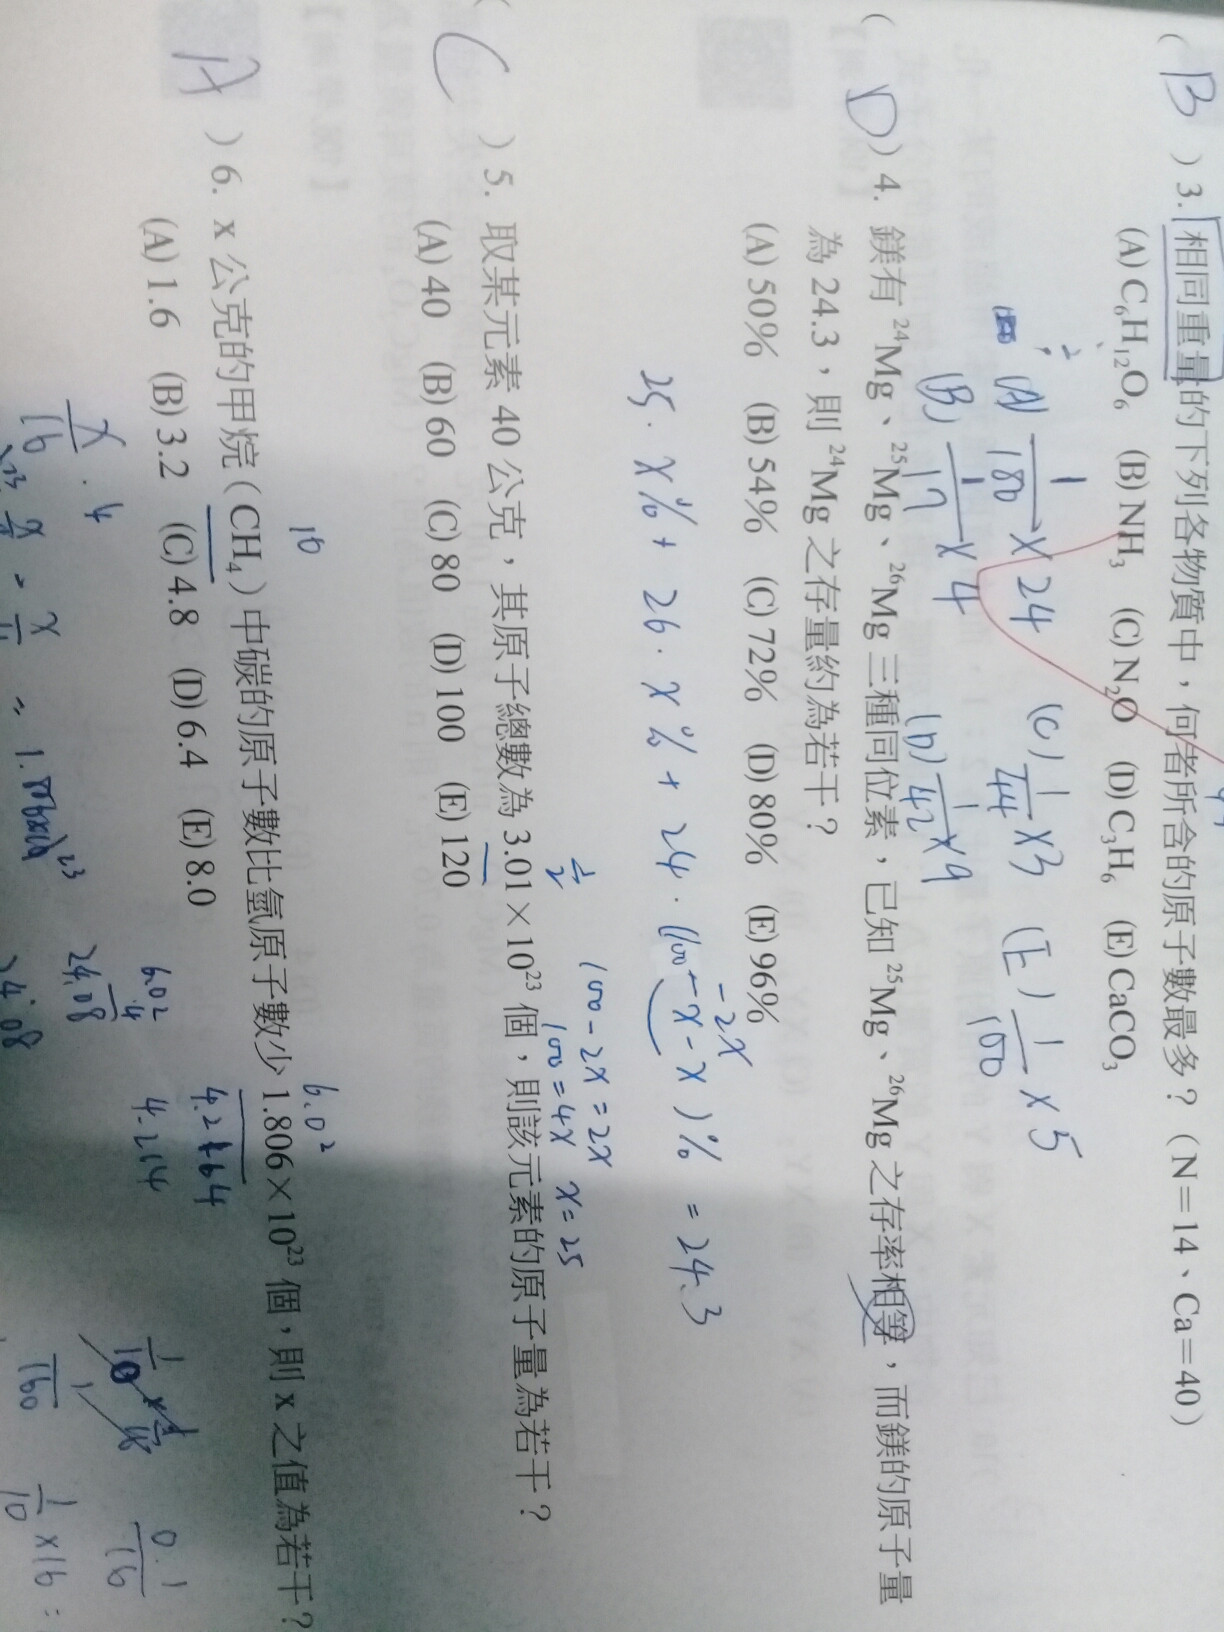 ( B ) 3. 相同重量的下列各物質中，何者所含的原子數最多？（N＝14、Ca＝40）
(A) C₆H₁₂O₆ (B) NH₃ (C) N₂O (D) C₃H₆ (E) CaCO₃
(A) 1/180 × 24 (C) 1/44 × 3 (E) 1/100 × 5
(B) 1/17 × 4 (D) 1/42 × 9
( D ) 4. 鎂有 ²⁴Mg、²⁵Mg、²⁶Mg 三種同位素，已知 ²⁵Mg、²⁶Mg 之存率相等，而鎂的原子量
為 24.3，則 ²⁴Mg 之存量約為若干？
(A) 50% (B) 54% (C) 72% (D) 80% (E) 96%
-2x
25．x% + 26．x% + 24．(100-x-x)% = 24.3
100-2x=2x
1/2 100=4x x=25
( C ) 5. 取某元素 40 公克，其原子總數為 3.01×10²³ 個，則該元素的原子量為若干？
(A) 40 (B) 60 (C) 80 (D) 100 (E) 120
16 6.02
( A ) 6. x 公克的甲烷（CH₄）中碳的原子數比氫原子數少 1.806×10²³ 個，則 x 之值為若干？
(A) 1.6 (B) 3.2 (C) 4.8 (D) 6.4 (E) 8.0
6.02
4
24.08
4.214
x/16．4
0.1/16
1/160
1/10×16=
24.08